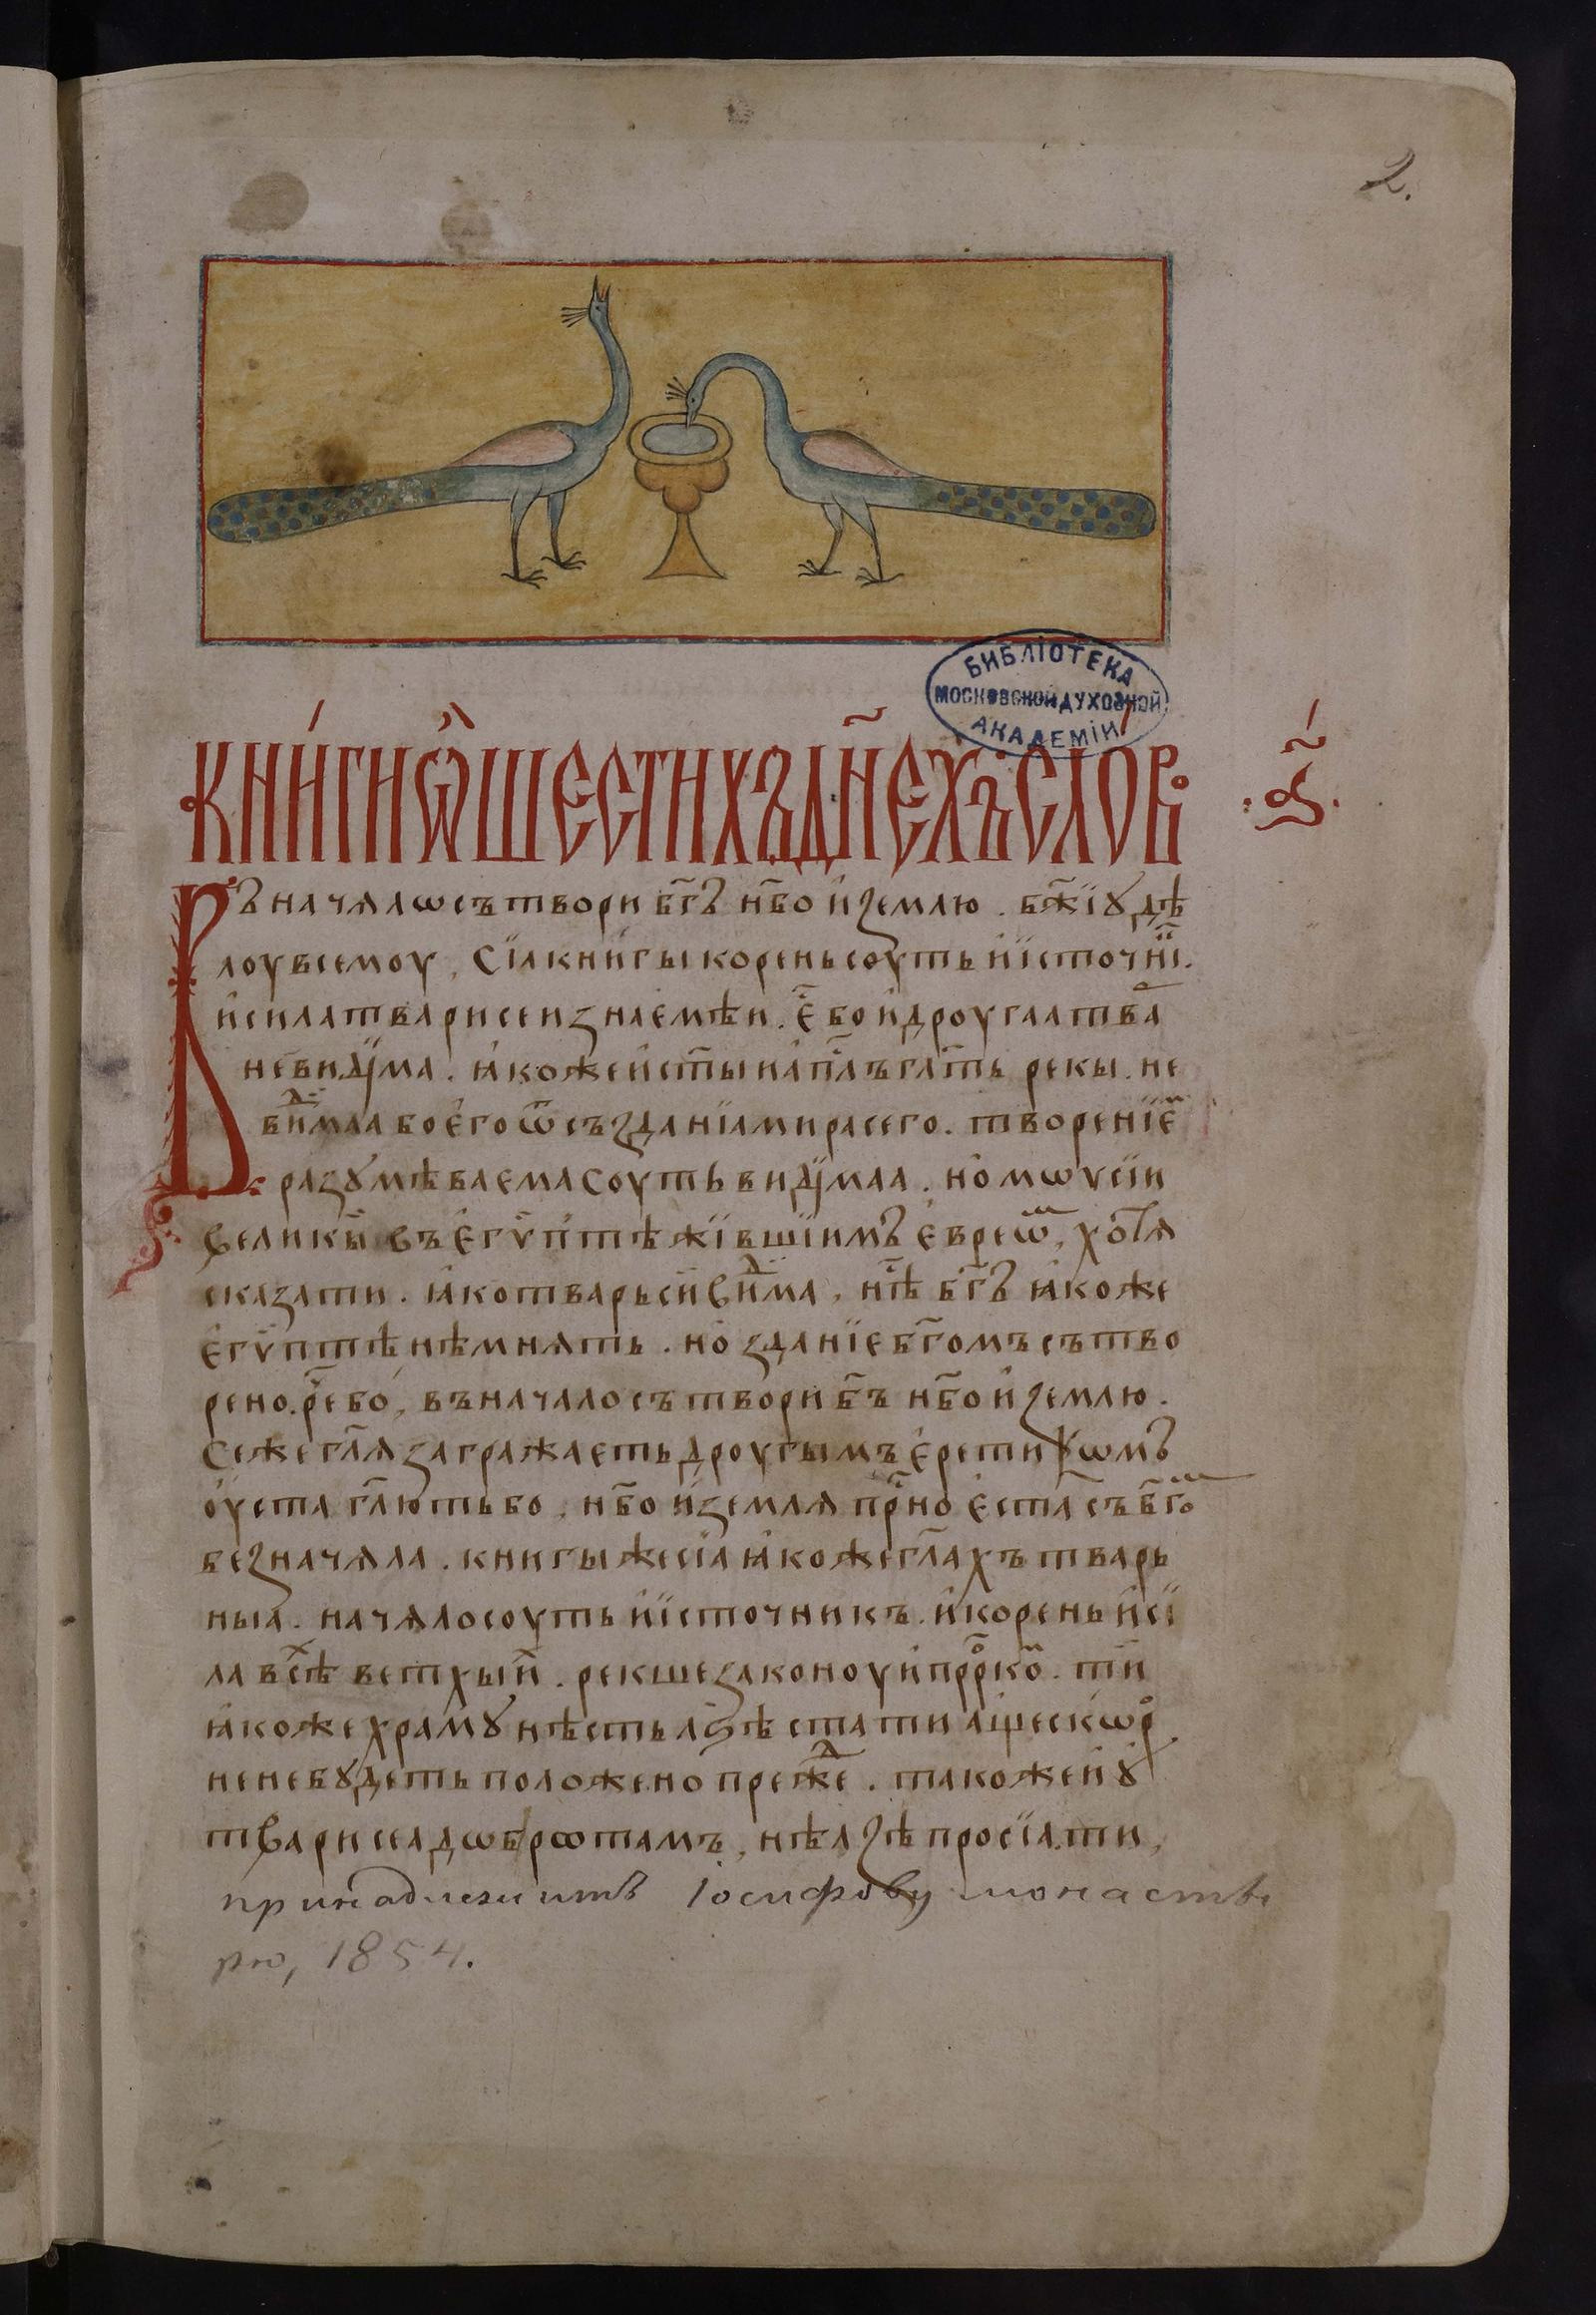 2.
БИБЛІОТЕКА
МОСКОВСКОЙ ДУХОВНОЙ
АКАДЕМІИ
КНИ́ГИ Ѽ ШЕСТИХЪ Д҃НЕХЪ СЛОВ
·а҃·
Въ начѧлѡ сътвори бг҃ъ нб҃о и҆ землю . бж҃їꙋ дѣ
лоу всемоу , Сїа книгы корень соуть и҆ їсточнїⷦ҇.
и҆ сила твари сеи знаемѣи . є҆ⷭ҇ бо и҆ другаа твⷬ҇а
невиди́ма . ꙗ҆коже и҆ ст҃ыи а҆пⷭ҇лъ гл҃ть рекы . не
виⷣ҇маа бо є҆го ѿ създанїа мира сего . творенїеⷨ҇
разꙋмѣваема соуть види́маа . но мѡѵсїи
великы̏ въ є҆гѵ́птѣ жи́вшїимъ є҆вреѡⷨ҇, хотѧ
сказати . ꙗ҆ко тварь сїи виⷣ҇ма , нⷭ҇ѣ бг҃ъ ꙗ҆коже
є҆гѵптѣнѣ мнѧть . но̀ зданїе бг҃омъ сътво
рено . рⷱ҇е бо , въ начало сътвори б҃ъ нб҃о и҆ землю .
Се же гл҃ѧ заграждаеть другымъ є҆ретикѡмъ
оу҆ста гл҃ють бо , нб҃о и҆ землѧ прⷭ҇но є҆стⷭ҇а съ бг҃оⷨ
без начѧла . книгы же сїа ꙗ҆коже гл҃ахъ тварь
ныа . начѧло соуть и҆ їсточникъ . и҆ корень и҆ си
ла всⷯѣ ветхыиⷯ . рекше законоу и҆ прⷪ҇ркоⷨ . тїи
ꙗ҆коже храмꙋ нѣсть лзѣ стати а҆ще скѡрⷪ
не не бꙋдеть положено преⷤⷣе . такоже и҆ ꙋ
твари сеа дѡбротамъ , нѣ лзѣ просїати ,
принадлежитъ Іосифову монасты
рю, 1854.